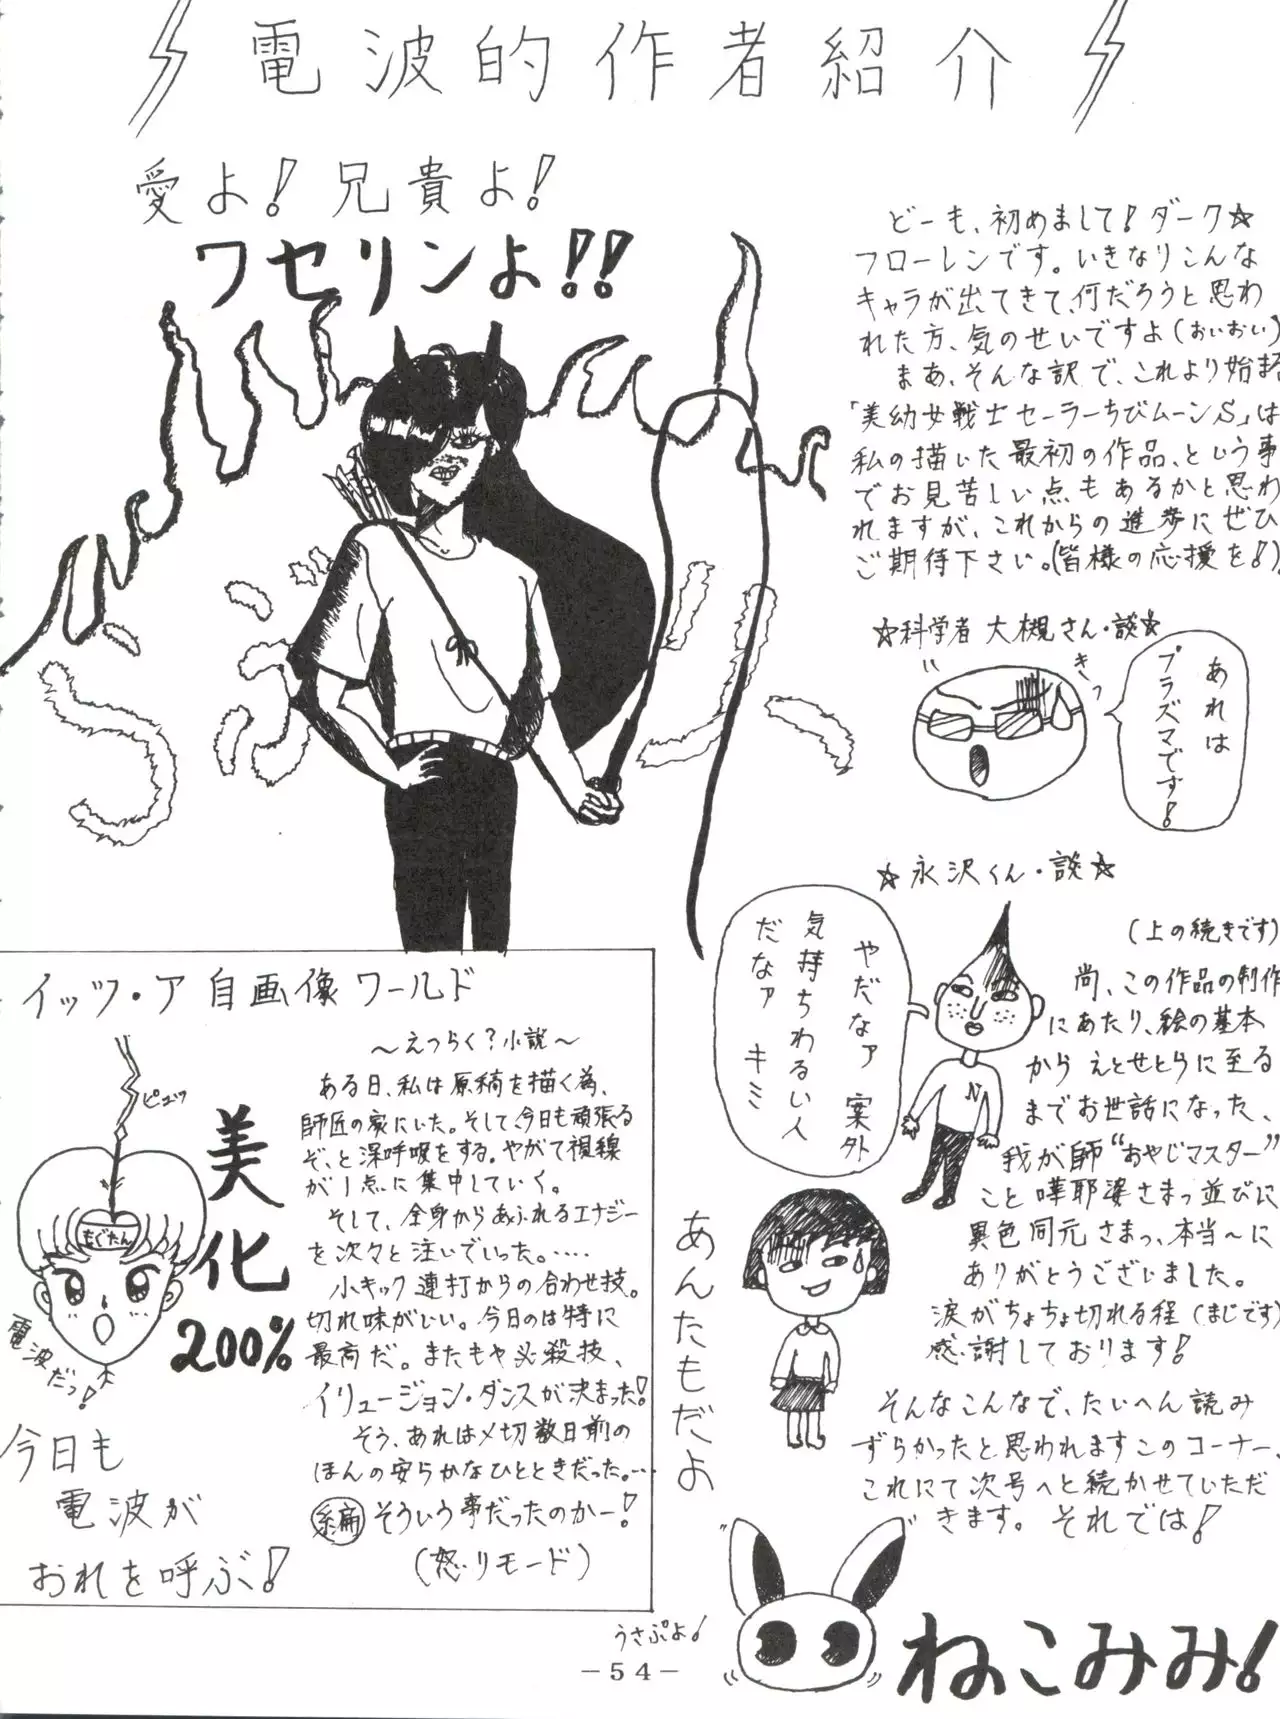 電波的作者紹介
愛よ!兄貴よ!
ワセリンよ!!
どーも、初めまして!ダーク☆
フローレンです。いきなりこんな
キャラが出てきて、何だろうと思わ
れた方、気のせいですよ(おいおい)
まあ、そんな訳で、これより始まる
「美幼女戦士セーラーちびムーンS」は
私の描いた最初の作品、という事
でお見苦しい点もあるかと思わ
れますが、これからの進歩にぜひ
ご期待下さい。(皆様の応援を!)。
☆科学者 大槻さん・談☆
きっ
あれは
プラズマです!
☆永沢くん・談☆
やだなァ 案外
気持ちわるい人
だなァ キミ
N
あんたもだよ
(上の続きです)
尚、この作品の制作
にあたり、絵の基本
から えとせとらに至る
までお世話になった、
我が師“おやじマスター”
こと 嘩耶婆さまっ並びに
異色同元さまっ、本当〜に
ありがとうございました。
涙がちょちょ切れる程(まじです)
感謝しております!
そんなこんなで、たいへん読み
ずらかったと思われますこのコーナー、
これにて次号へと続かせていただ
きます。それでは!
イッツ・ア 自画像ワールド
〜えつらく?小説〜
ある日、私は原稿を描く為、
師匠の家にいた。そして、今日も頑張る
ぞ、と深呼吸をする。やがて視線
が1点に集中していく。
そして、全身からあふれるエナジー
を次々と注いでいった。‥‥
小キック連打からの合わせ技。
切れ味がいい。今日のは特に
最高だ。またもや必殺技、
イリュージョン・ダンスが決まった!
そう、あれは〆切数日前の
ほんの安らかなひとときだった。…
編 そういう事だったのかー!
(怒りモード)
ピュッ
もぐたん
美化
200%
電波だっ!
今日も
電波が
おれを呼ぶ!
うさぷよ!
ねこみみ!
－54－